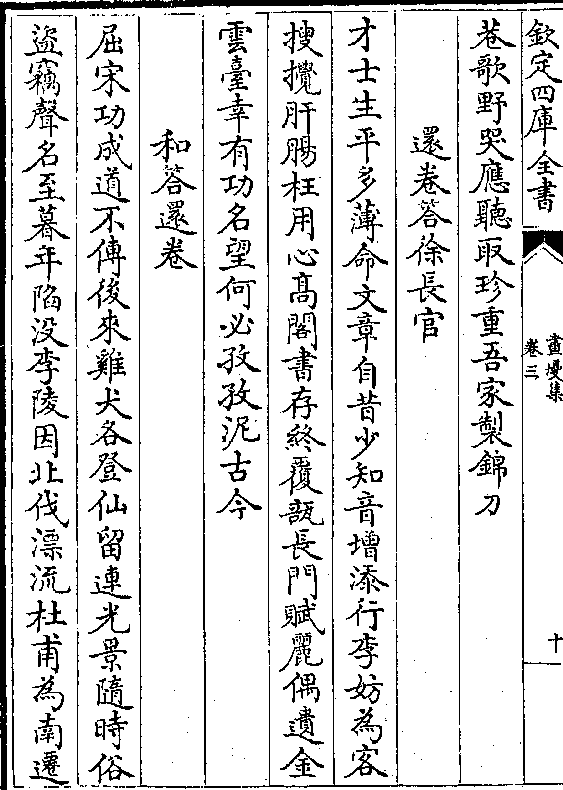 欽定四庫全書
畫墁集
卷三
十
巷歌野哭應聽取珍重吾家製錦刀
還卷答徐長官
才士生平多薄命文章自昔少知音增添行李妨為客
搜攪肝腸枉用心髙閣書存終覆瓿長門賦麗偶遺金
雲臺幸有功名望何必孜孜泥古今
和答還卷
屈宋功成道不傳後來雞犬各登仙留連光景隨時俗
盜竊聲名至暮年陷没李陵因北伐漂流杜甫為南遷